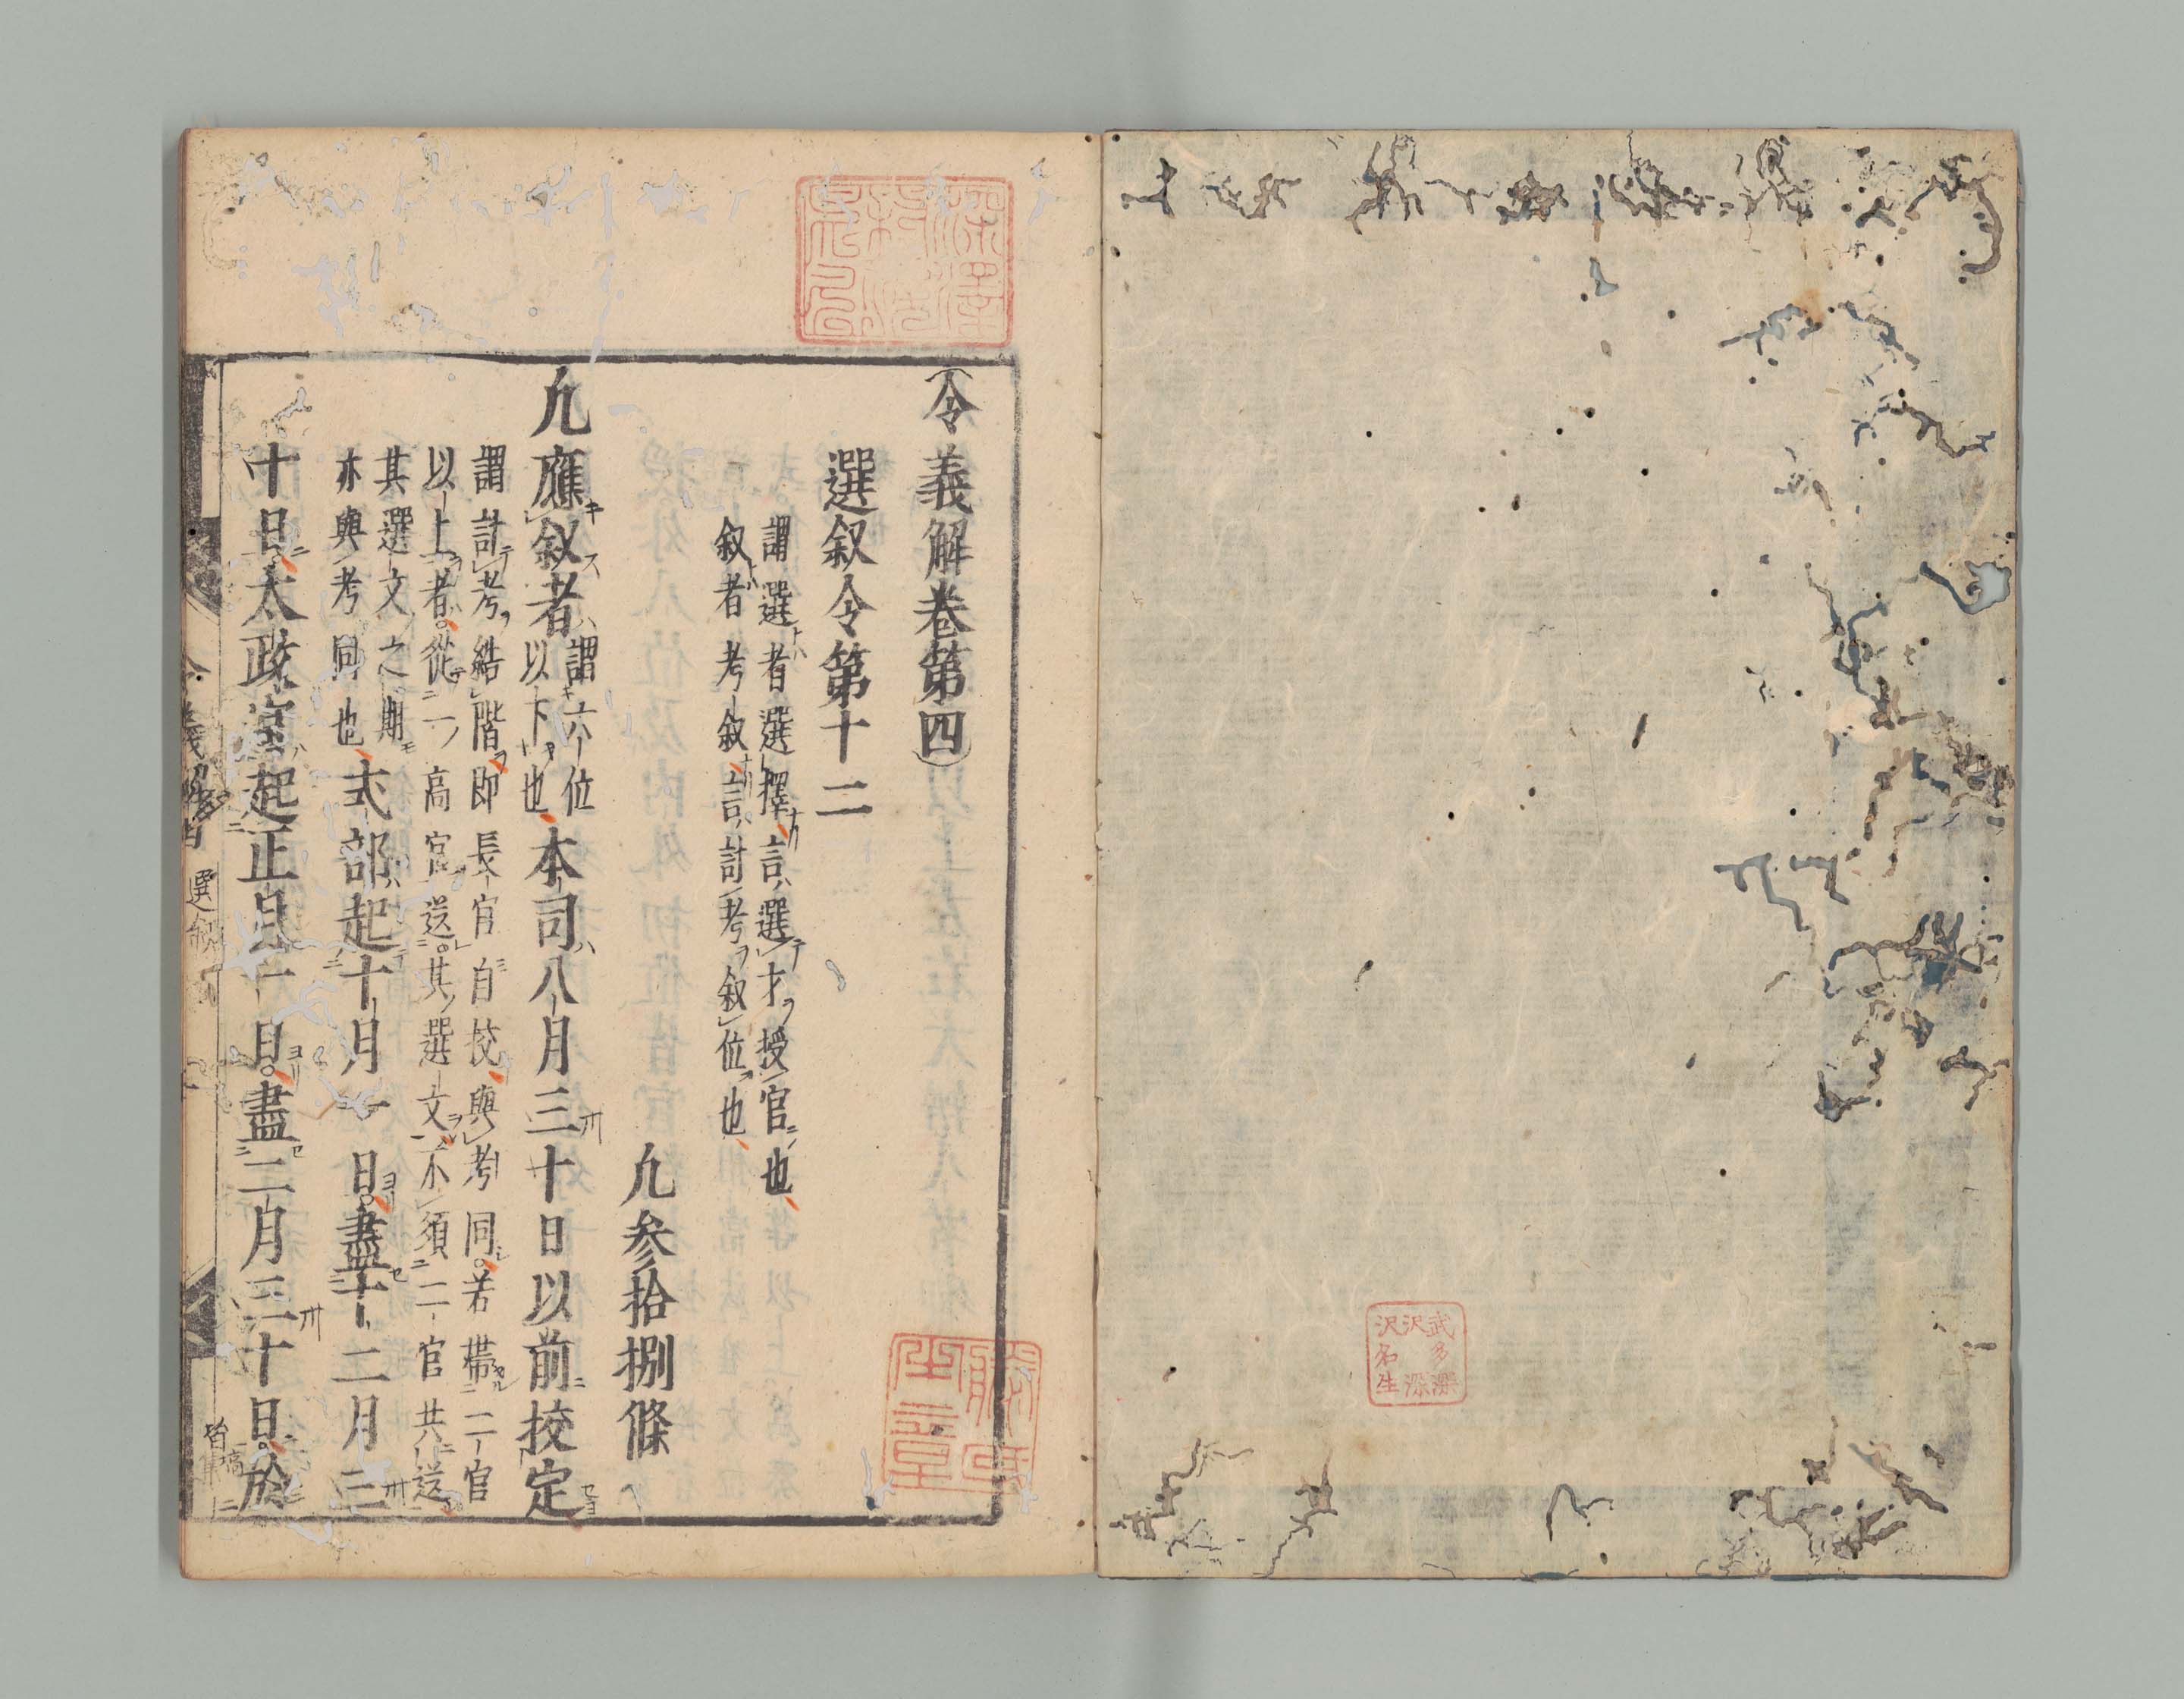 武多深
沢深
沢名生
令義解卷第四
選叙令第十二
謂選者選擇言選才授官也
叙者考叙言計考叙位也
凢参拾捌條
凢應叙者
謂六位
以下也
本司八月三十日以前挍定
謂計考結階即長官自挍與考同若帶二官
以上者從一高官送其選文不須二官共送
其選文之期
亦與考同也
式部起十月一日盡十二月三
十日太政官起正月一日盡二月三十日於